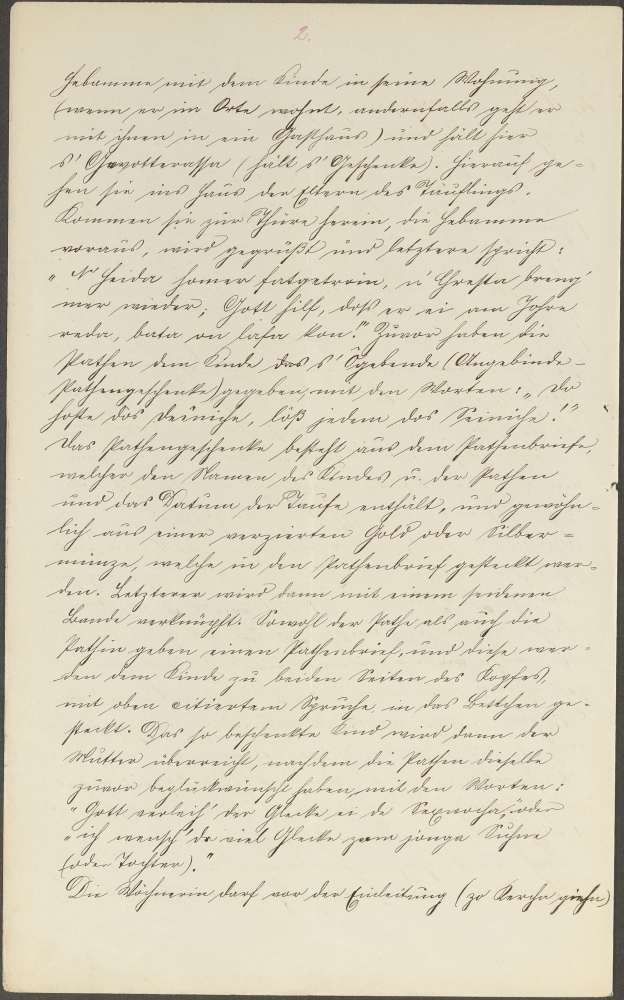 2.
Hebamme mit dem Kinde in seine Wohnung,
(wenn er im Orte wohnt, andernfalls geht er
mit ihnen in ein Gasthaus) und hält hier
s' Gevotterassa (hält s' Geschenke). Hierauf ge-
hen sie ins Haus der Eltern des Täuflings.
Kommen sie zur Thüre herein, die Hebamme
voraus, wird gegrüßt und letztere spricht:
" Heida homer fatgetroin, n' Chresta breng'
mer wieder; Gott hilf, doß er ei am Johre
reda, bata on lafa kon." Zuvor haben die
Pathen dem Kinde das s' Ogebende (Angebinde-
Pathengeschenke) gegeben, mit den Worten: „Do
hoste dos Deiniche, loß jedem dos Seiniche!"
Das Pathengeschenke besteht aus dem Pathenbriefe,
welcher den Namen des Kindes u. der Pathen
und das Datum der Taufe enthält, und gewöhn-
lich aus einer verzierten Gold oder Silber-
münze, welche in den Pathenbrief gesteckt wer-
den. Letzterer wird dann mit einem seidenen
Bande verknüpft. Sowohl der Pathe als auch die
Pathin geben einen Pathenbrief, und diese wer-
den dem Kinde zu beiden Seiten des Kopfes,
mit oben citiertem Spruche, in das Bettchen ge-
steckt. Das so beschenkte Kind wird dann der
Mutter überreicht, nachdem die Pathen dieselbe
zuvor beglückwünscht haben mit den Worten:
"Gott verleih' der Glecke ei de Sexwocha," oder
"ich wensch' dr viel Glecke zum jonga Suhne
(oder Tochter)."
Die Wöchnerin darf vor der Einleitung (zo Kercha giehn)